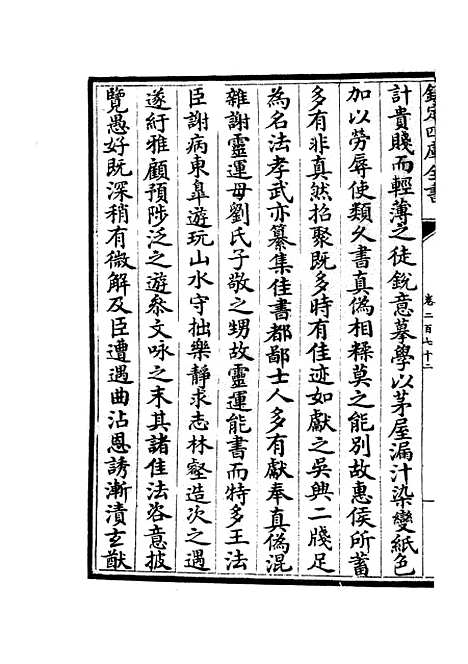 欽定四庫全書
卷二百七十二
計貴賤而輕薄之徒銳意摹學以茅屋漏汁染變紙色
加以勞辱使類久書真偽相糅莫之能別故惠侯所蓄
多有非真然招聚既多時有佳迹如獻之吳興二牋足
為名法孝武亦纂集佳書都鄙士人多有獻奉真偽混
雜謝靈運母劉氏子敬之甥故靈運能書而特多王法
臣謝病東皐遊玩山水守拙樂靜求志林壑造次之遇
遂紆雅顧預陟泛之遊叅文咏之末其諸佳法恣意披
覽愚好既深稍有微解及臣遭遇曲沾恩誘漸漬玄猷